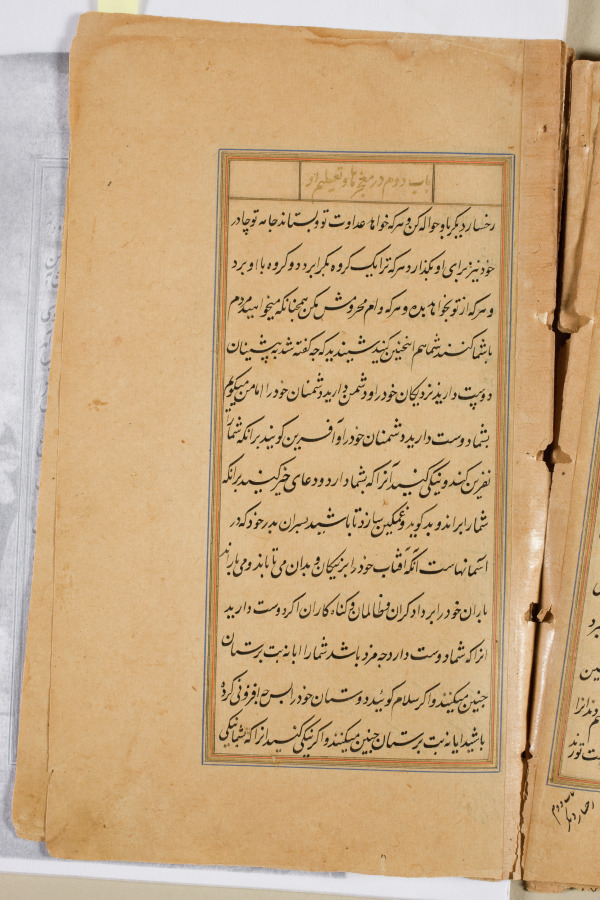 باب دوم در معجزها و تعلیم او
رخسار دیگر با و حواله کن و هر که خواهد عداوت تو و بستاند جامه تو چادر
خود نیز برای او بگذار و هر که ترا یک کروه بکرا برد دو کروه با او برو
و هر که از تو بخواهد بده و هر که وام محروش مکن همچنانکه میخواهید مردم
باشما کنند شما هم اینچنین کنید شنیدید که چه گفته شد به پیشینان
دوست دارید نزدیکان خود را و دشمن دارید دشمنان خود را اما من میگویم
بشما دوست دارید دشمنان خود را و آفرین کویند برانکه شمارا
نفرین کند و نیکی کنید آنرا که بشما دارد و دعای خیر کنید برانکه
شمارا براند و بد کوید و غمکین سازد تا باشید پسران پدر خود که در
آسمانهاست آنکه آفتاب خود را بر نیکان و بدان می تاباند و می باراند
باران خود را بر دادکران و ظالمان و کناه کاران اکر دوست دارید
انرا که شما دوست دارد چه مزد باشد شمارا ایا نه بت پرستان
چنین میکنند و اکر سلام کویئد دوستان خود را بس چه افزونی کرده
باشید ایا نه بت پرستان چنین میکنند و اکر نیکی کنید انرا که بشما نیکی
باب دوم
رخسار دیگر